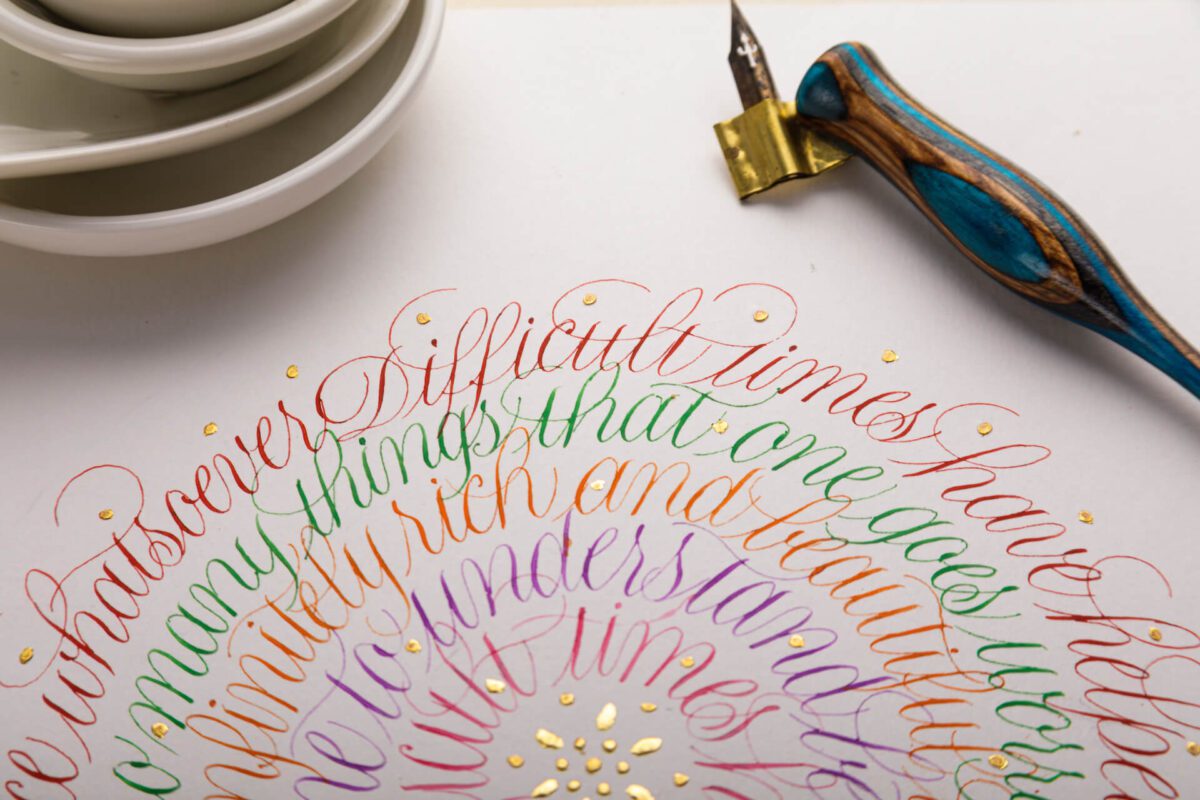 ce whatsoever Difficult times have helpe
o many things that one goes worr
infinitely rich and beautiful
me to understand
icult times